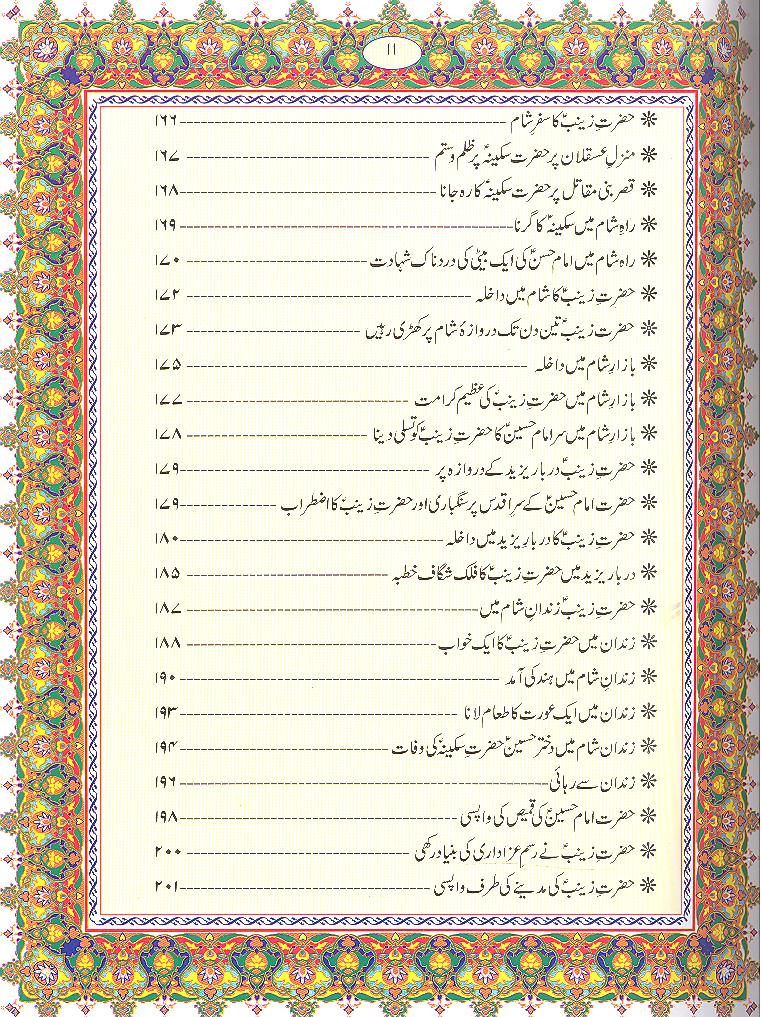 ۱۱
❋ حضرتِ زینبؑ کا سفرِ شام ۱۶۶
❋ منزلِ عسقلان پر حضرت سکینہؑ پر ظلم و ستم ۱۶۷
❋ قصر بنی مقاتل پر حضرت سکینہؑ کا رہ جانا ۱۶۸
❋ راہِ شام میں سکینہؑ کا گرنا ۱۶۹
❋ راہ شام میں امام حسنؑ کی ایک بیٹی کی دردناک شہادت ۱۷۰
❋ حضرتِ زینبؑ کا شام میں داخلہ ۱۷۲
❋ حضرتِ زینبؑ تین دن تک دروازۂ شام پر کھڑی رہیں ۱۷۳
❋ بازارِ شام میں داخلہ ۱۷۵
❋ بازارِ شام میں حضرتِ زینبؑ کی عظیم کرامت ۱۷۷
❋ بازارِ شام میں سرِ امام حسینؑ کا حضرتِ زینبؑ کو تسلی دینا ۱۷۸
❋ حضرتِ زینبؑ دربارِ یزید کے دروازہ پر ۱۷۹
❋ حضرت امام حسینؑ کے سرِ اقدس پر سنگباری اور حضرتِ زینبؑ کا اضطراب ۱۷۹
❋ حضرتِ زینبؑ کا دربارِ یزید میں داخلہ ۱۸۰
❋ دربارِ یزید میں حضرتِ زینبؑ کا فلک شگاف خطبہ ۱۸۵
❋ حضرتِ زینبؑ زندانِ شام میں ۱۸۷
❋ زندان میں حضرتِ زینبؑ کا ایک خواب ۱۸۸
❋ زندانِ شام میں ہند کی آمد ۱۹۰
❋ زندان میں ایک عورت کا طعام لانا ۱۹۳
❋ زندانِ شام میں دخترِ حسینؑ حضرتِ سکینہؑ کی وفات ۱۹۴
❋ زندان سے رہائی ۱۹۶
❋ حضرت امام حسینؑ کی قمیص کی واپسی ۱۹۸
❋ حضرتِ زینبؑ نے رسمِ عزاداری کی بنیاد رکھی ۲۰۰
❋ حضرتِ زینبؑ کی مدینے کی طرف واپسی ۲۰۱